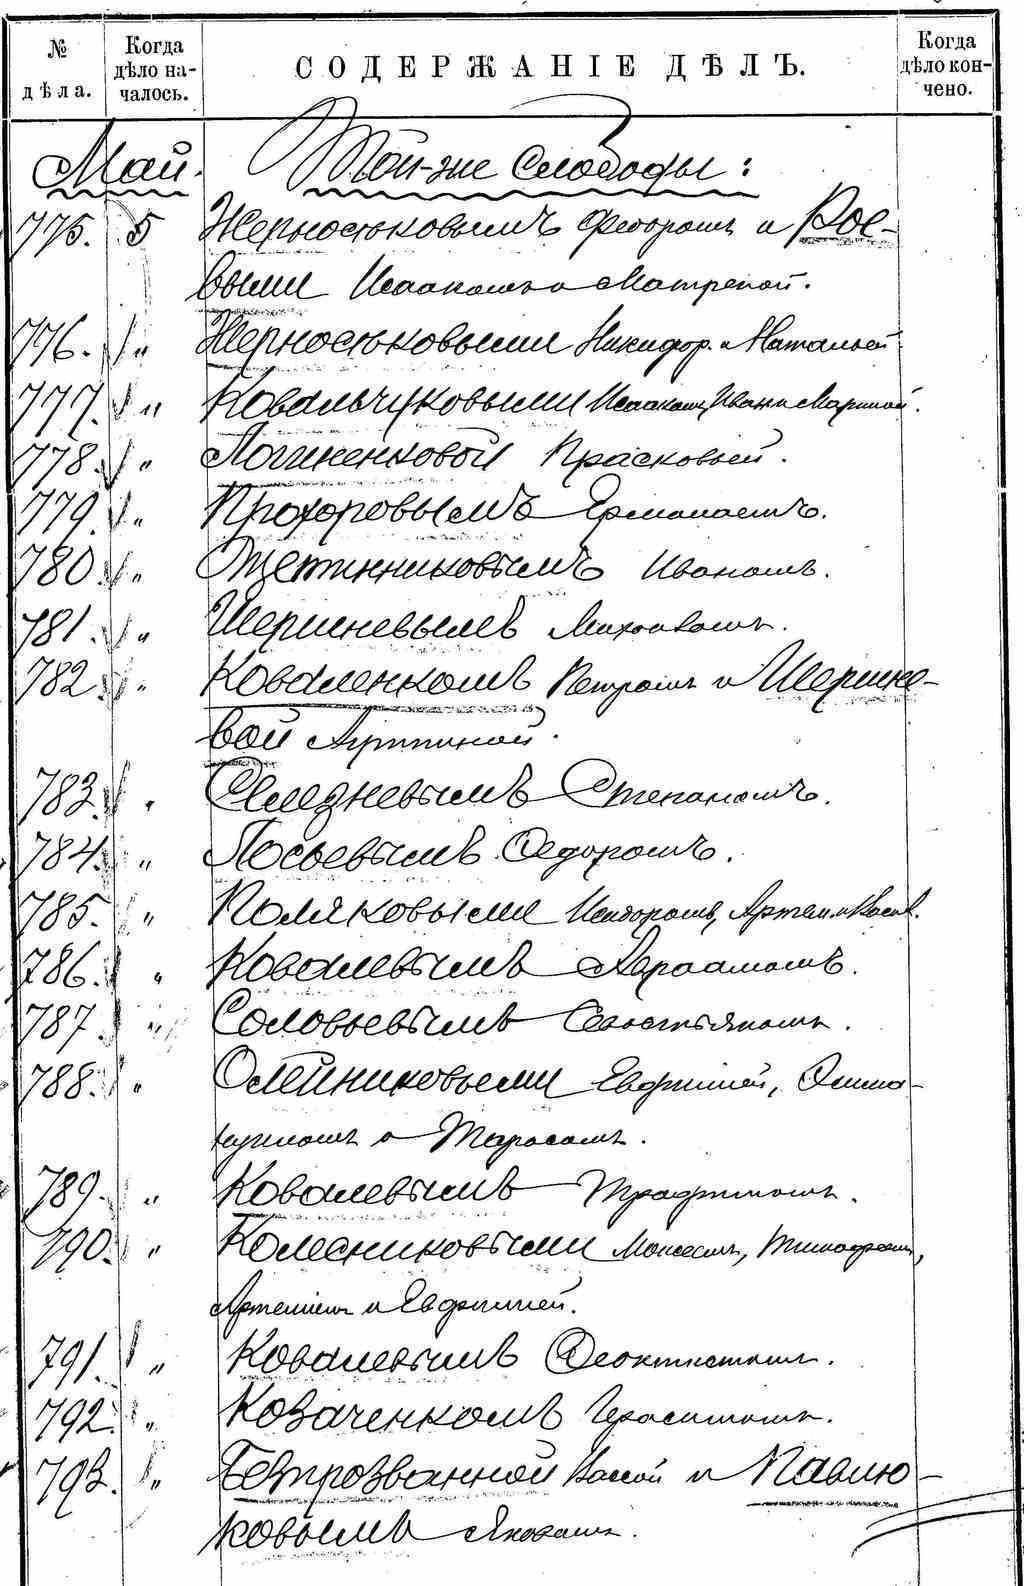 № дѣла.
Когда дѣло на-чалось.
СОДЕРЖАНІЕ ДѢЛЪ.
Когда дѣло кон-чено.
Май. Той-же Слободы:
775. 5 Черностоковымъ Федоромъ и
выми Исаакомъ и Матреной.
776. " Черностоковыми Никифор. и Натальей
777. " Ковальчуковыми Исаакомъ, Иван. и Мариной.
778. " Логиненковой Прасковьей.
779. " Прохоровымъ Ермолаемъ.
780. " Щетинниковымъ Иваномъ.
781. " Шершневымъ
782. " Коваленкомъ Петромъ и Шершне-
вой Агриппиной.
783. " Селезневымъ Степаномъ.
784. " Лосьевымъ Федоромъ.
785. " Поляковыми Исидоромъ, Артем. и
786. " Ковалевымъ Авраамомъ.
787. " Соловьевымъ Севостьяномъ.
788. " Олейниковыми Евфиміей,
и Тарасомъ.
789. " Ковалевымъ Трофимомъ.
790. " Колесниковыми Моисеемъ, Тимофеемъ,
Артеміемъ и Евфиміей.
791. " Ковалевымъ Феоктистомъ.
792. " Козаченкомъ Герасимомъ.
793. " Безпрозванной Вассой и Павлю-
ковымъ Яковомъ.